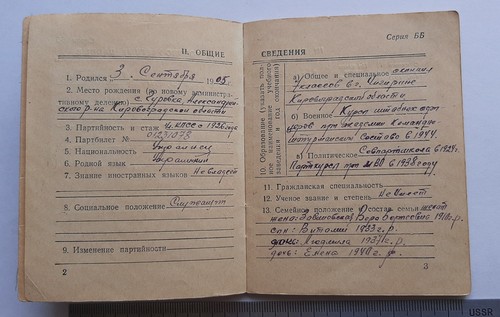 II. ОБЩИЕ
1. Родился 3. Сентября 1905.
2. Место рождения (по новому администра-
тивному делению) с. Куровка, Александров-
ского Р-на Кировоградской области
3. Партийность и стаж чл. КПСС с 1926 года
4. Партбилет № 01231078
5. Национальность Украинец
6. Родной язык Украинский
7. Знание иностранных языков Не владеет
8. Социальное положение Служащий
9. Изменение партийности
2
Серия ББ
СВЕДЕНИЯ
10. Образование (указать пол-
ное наименование учебного
заведения и год окончания)
а) Общее и специальное окончил
7 классов в г. Чигирине
Кировоградской области
б) Военное Курсы штабных офи
церов при Академии Командно
Состава в 1944.
в) Политическое Совпартшкола в 1929г.
Партийных при МВО в 1938 году
11. Гражданская специальность
12. Ученое звание и степень Не имеет
13. Семейное положение и состав семьи женат
жена: Вера 1910г.р.
сын: Виталий 1933 г.р.
дочь: Людмила 1937г.р.
дочь: Елена 1940 г.р.
3
USSR